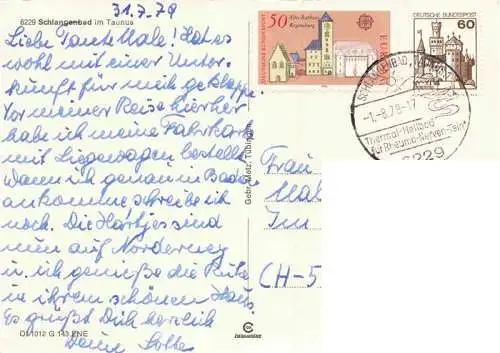 31.7.79
6229 Schlangenbad im Taunus
Liebe Tante Male! Hat es
wohl mit einer Unter-
kunft für mich geklappt?
Vor meiner Reise hierher
habe ich meine Fahrkarte
mit Liegewagen bestellt.
Wann ich genau in Baden
ankomme schreibe ich
noch. Die Hartjes sind
nun auf Norderney
u. ich genieße die Ruhe
in ihrem schönen Haus.
Es grüßt Dich herzlich
Deine
Gebr. Metz, Tübingen
50
Altes Rathaus
Regensburg
DEUTSCHE BUNDESPOST
EUROPA
DEUTSCHE BUNDESPOST
60
SCHLANGENBAD
-1.-8.79-17
Thermal-Heilbad
für Rheuma-Nerven-
6229
Frau
Mal
Im
CH-5